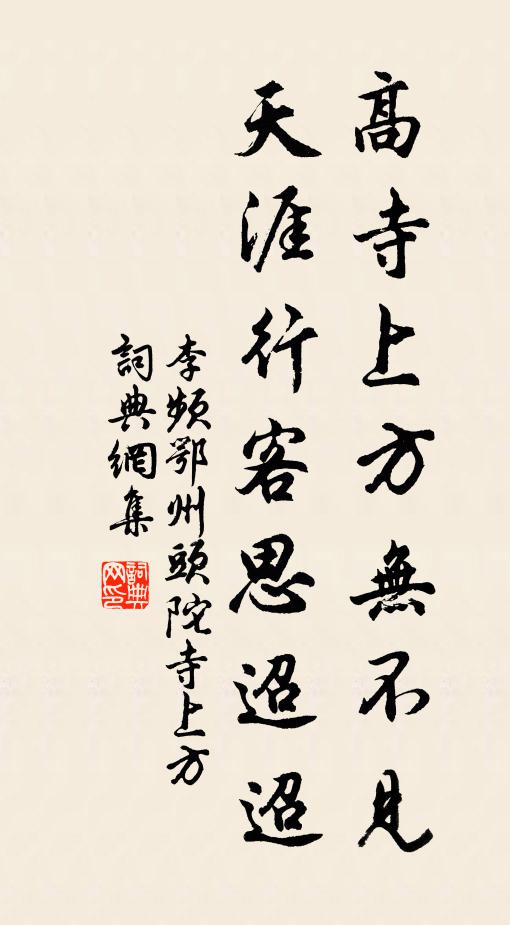 高寺上方無不見
天涯行客思迢迢
李頻鄂州頭陀寺上方
詞典網集
詞典
网印